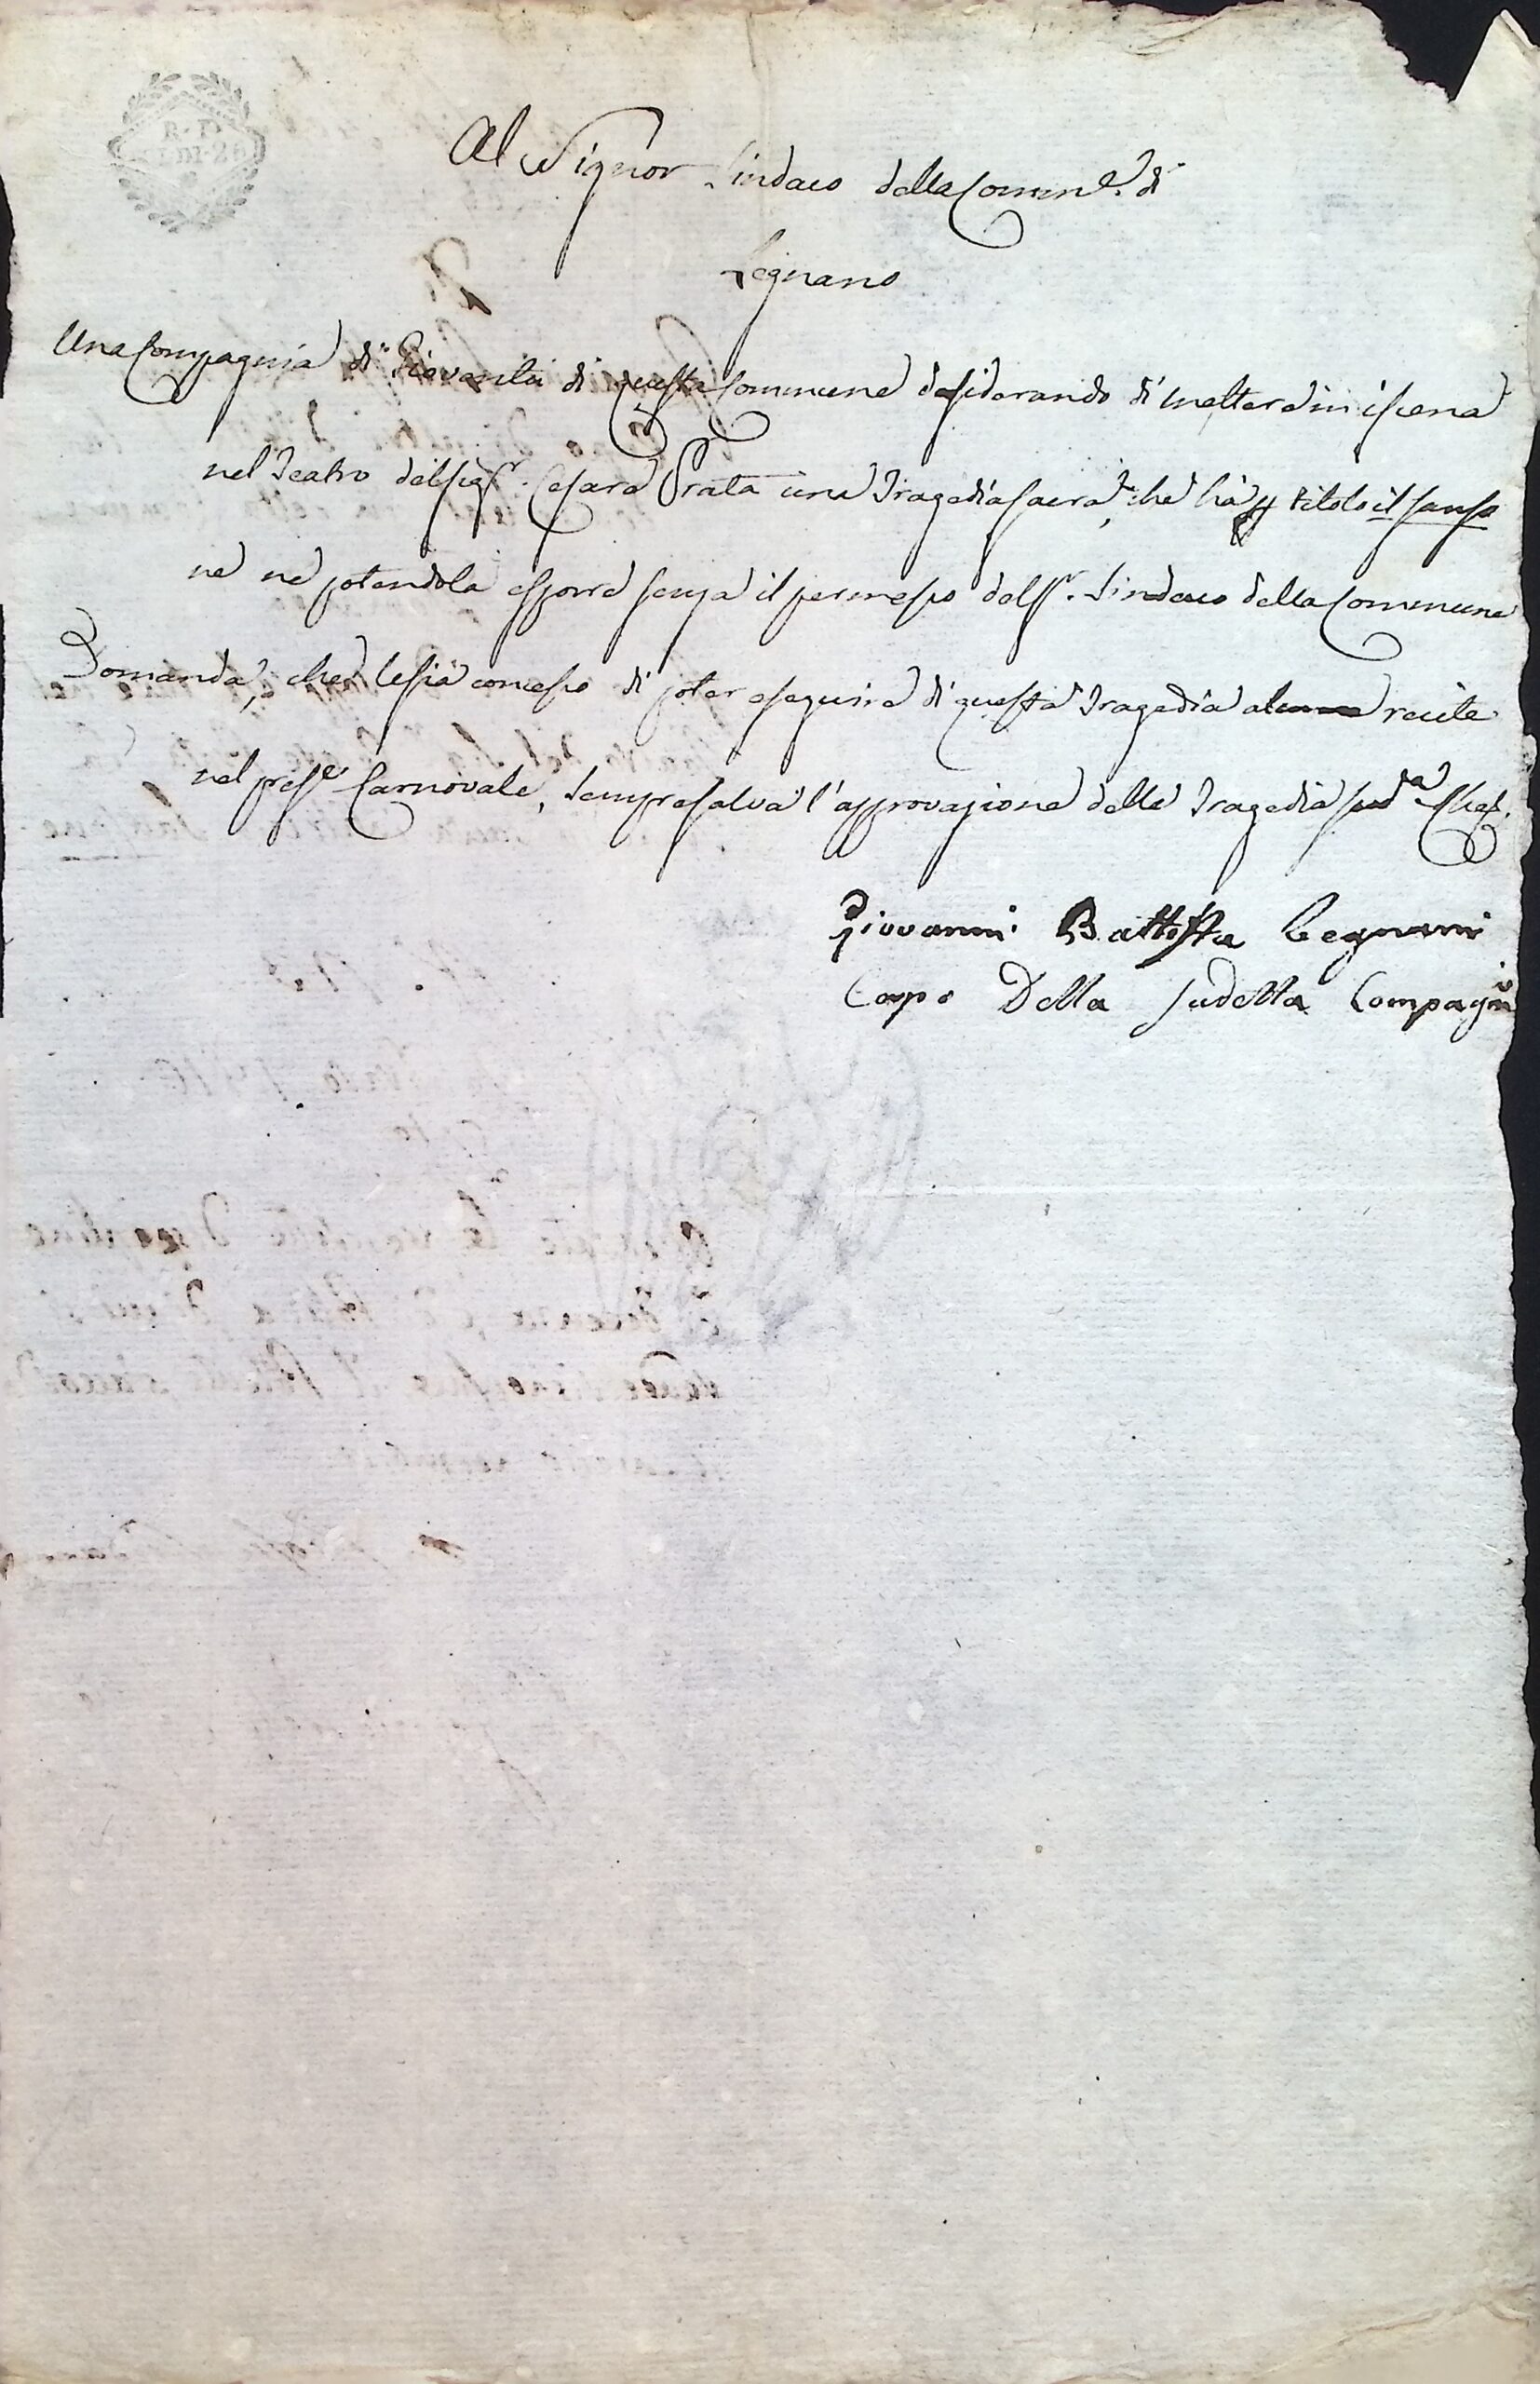 Al Signor Sindaco della Comun.e di
Legnano
Una Compagnia di Gioventù di questa Commune desiderando di mettere in iscena
nel Teatro del Sig.r Cesare Prata una Tragedia sacra, che hà per titolo il Sanso
ne ne potendola esporre senza il permesso del S.r Sindaco della Commune
Domanda, che le sia concesso di poter eseguire di questa Tragedia alcune recite
nel pres.e Carnovale, sempre salva l'approvazione della Tragedia sud.a Che f.
Giovanni Battista Legnani
Capo Della sudetta Compagni